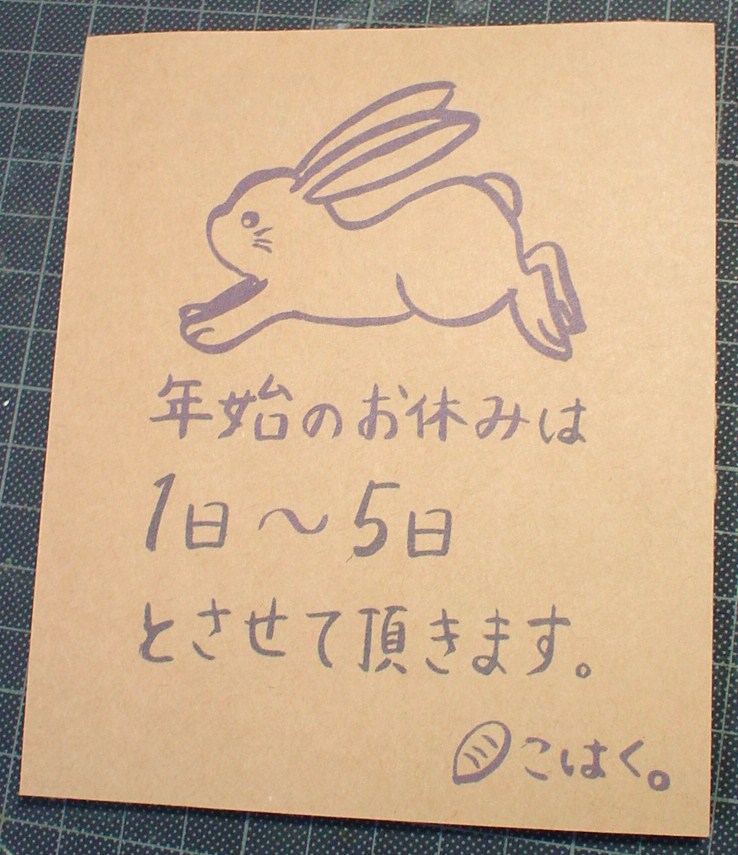 年始のお休みは
1日～5日
とさせて頂きます。
こはく。